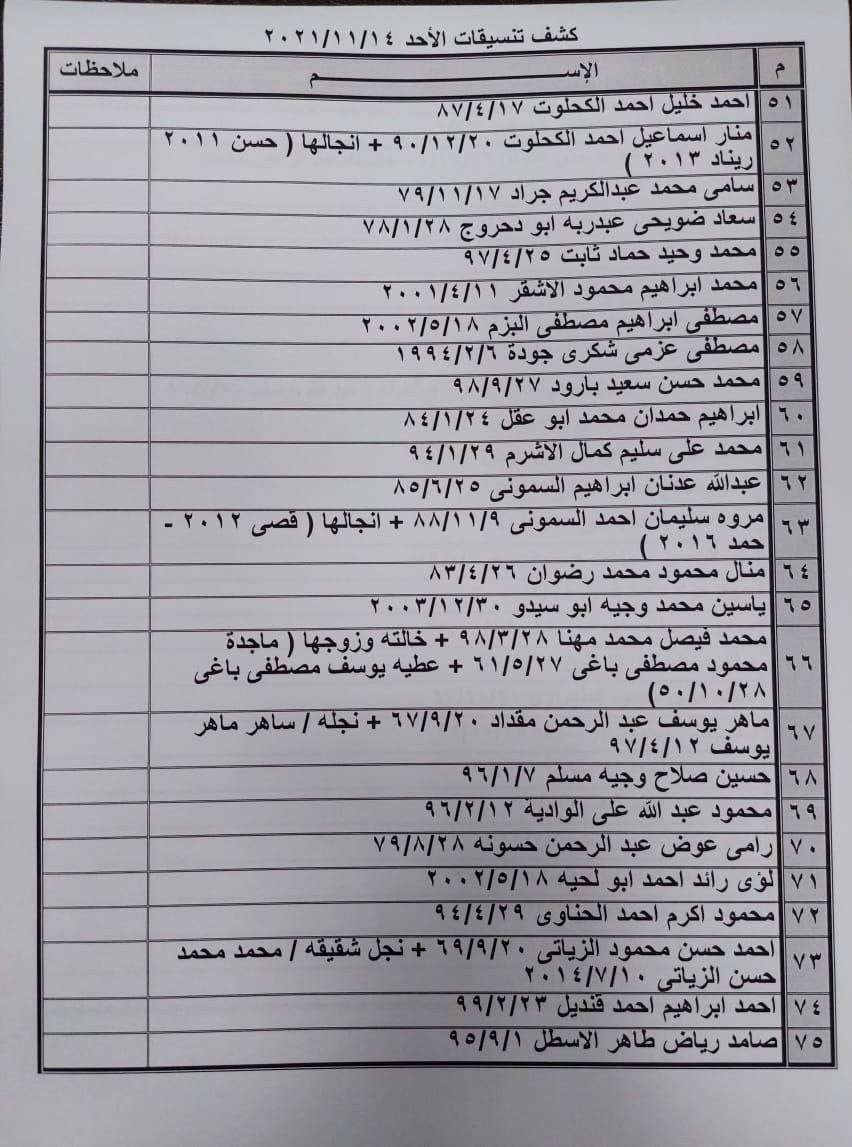 كشف تنسيقات الأحد ٢٠٢١/١١/١٤
م الإســـــــــم ملاحظات
٥١ احمد خليل احمد الكحلوت ٨٧/٤/١٧
٥٢ منار اسماعيل احمد الكحلوت ٩٠/١٢/٢٠ + انجالها ( حسن ٢٠١١
ريناد ٢٠١٣ )
٥٣ سامى محمد عبدالكريم جراد ٧٩/١١/١٧
٥٤ سعاد ضويحى عبدربه ابو دحروج ٧٨/١/٢٨
٥٥ محمد وحيد حماد ثابت ٩٧/٤/٢٥
٥٦ محمد ابراهيم محمود الاشقر ٢٠٠١/٤/١١
٥٧ مصطفى ابراهيم مصطفى البزم ٢٠٠٢/٥/١٨
٥٨ مصطفى عزمى شكرى جودة ١٩٩٤/٢/٦
٥٩ محمد حسن سعيد بارود ٩٨/٩/٢٧
٦٠ ابراهيم حمدان محمد ابو عقل ٨٤/١/٢٤
٦١ محمد على سليم كمال الاشرم ٩٤/١/٢٩
٦٢ عبدالله عدنان ابراهيم السمونى ٨٥/٦/٢٥
٦٣ مروه سليمان احمد السمونى ٨٨/١١/٩ + انجالها ( قصى ٢٠١٢ -
حمد ٢٠١٦ )
٦٤ منال محمود محمد رضوان ٨٣/٤/٢٦
٦٥ ياسين محمد وجيه ابو سيدو ٢٠٠٣/١٢/٣٠
٦٦ محمد فيصل محمد مهنا ٩٨/٣/٢٨ + خالته وزوجها ( ماجدة
محمود مصطفى باغى ٦١/٥/٢٧ + عطيه يوسف مصطفى باغى
٥٠/١٠/٢٨)
٦٧ ماهر يوسف عبد الرحمن مقداد ٦٧/٩/٢٠ + نجله / ساهر ماهر
يوسف ٩٧/٤/١٢
٦٨ حسين صلاح وجيه مسلم ٩٦/١/٧
٦٩ محمود عبد الله على الوادية ٩٦/٢/١٢
٧٠ رامى عوض عبد الرحمن حسونه ٧٩/٨/٢٨
٧١ لؤى رائد احمد ابو لحيه ٢٠٠٢/٥/١٨
٧٢ محمود اكرم احمد الحناوى ٩٤/٤/٢٩
٧٣ احمد حسن محمود الزياتى ٦٩/٩/٢٠ + نجل شقيقه / محمد محمد
حسن الزياتى ٢٠١٤/٧/١٠
٧٤ احمد ابراهيم احمد قنديل ٩٩/٢/٢٣
٧٥ صامد رياض طاهر الاسطل ٩٥/٩/١